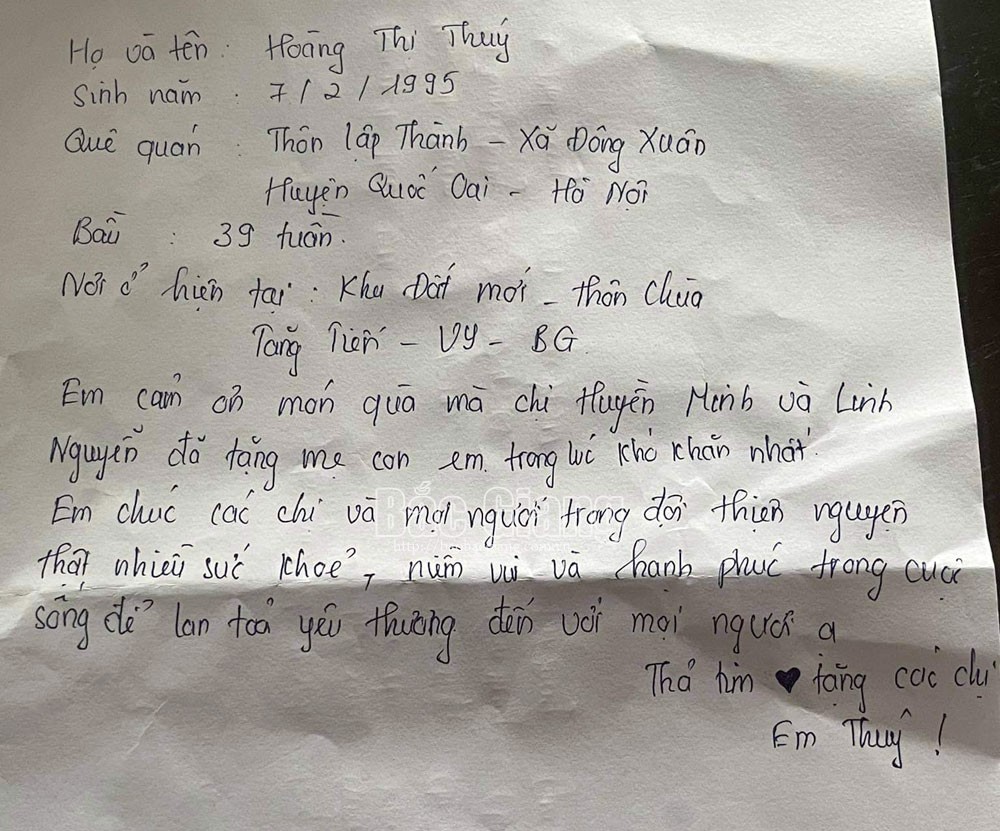 Họ và tên : Hoàng Thị Thuý
Sinh năm : 7/2/1995
Quê quán : Thôn lập Thành - Xã Đông Xuân
Huyện Quốc Oai - Hà Nội
Bầu : 39 tuần.
Nơi ở hiện tại : Khu Đất mới - thôn Chùa
Tăng Tiến - VY - BG
Em cảm ơn món quà mà chị Huyền Minh và Linh
Nguyễn đã tặng mẹ con em trong lúc khó khăn nhất.
Em chúc các chị và mọi người trong đội thiện nguyện
thật nhiều sức khoẻ, niềm vui và hạnh phúc trong cuộc
sống để lan toả yêu thương đến với mọi người ạ
Thả tim ♥ tặng các chị
Em Thuý !
Bắc Giang